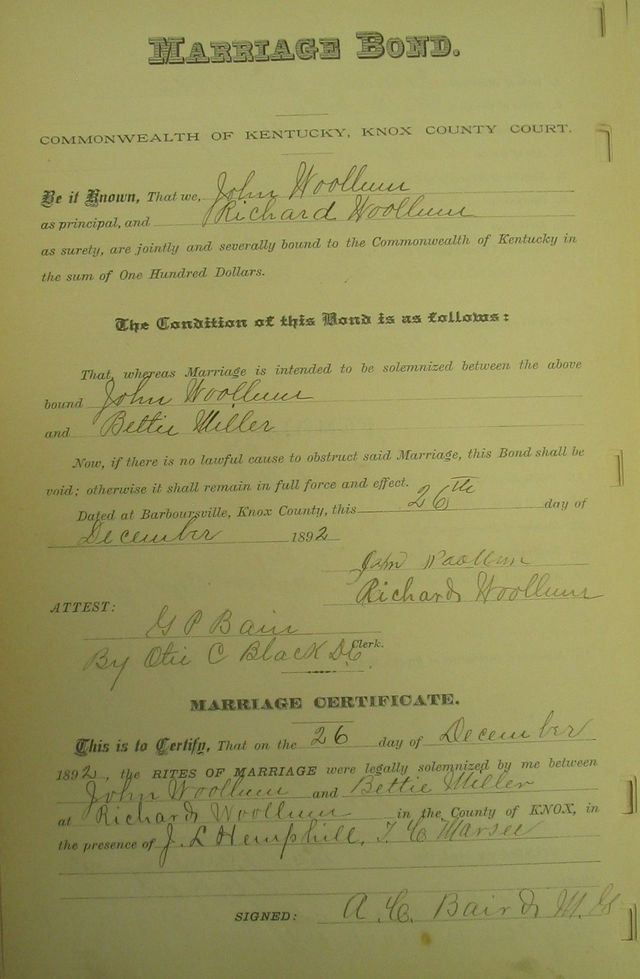 MARRIAGE BOND.
COMMONWEALTH OF KENTUCKY, KNOX COUNTY COURT.
Be it Known, That we, John Woollum
as principal, and Richard Woollum
as surety, are jointly and severally bound to the Commonwealth of Kentucky in
the sum of One Hundred Dollars.
The Condition of this Bond is as follows:
That, whereas Marriage is intended to be solemnized between the above
bound John Woollum
and Bettie Miller
Now, if there is no lawful cause to obstruct said Marriage, this Bond shall be
void; otherwise it shall remain in full force and effect.
Dated at Barboursville, Knox County, this 26th day of
December 1892
John Woollum
Richard Woollum
ATTEST:
G P Bain
Clerk.
By Otie C Black D.C.
MARRIAGE CERTIFICATE.
This is to Certify, That on the 26 day of December
1892, the RITES OF MARRIAGE were legally solemnized by me between
John Woollum and Bettie Miller
at Richard Woollum in the County of KNOX, in
the presence of J. L Hemphill, T. C Marsee
SIGNED: A. C. Baird M. G